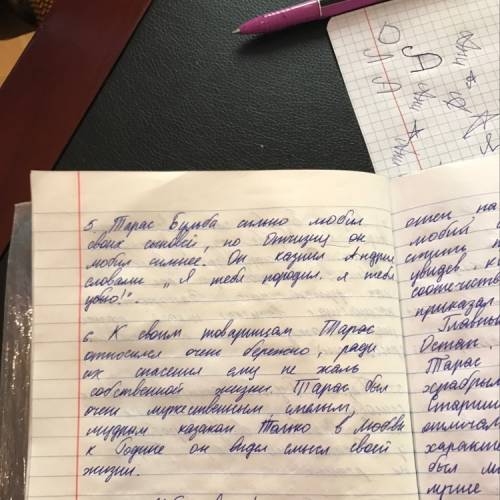 5. Тарас Бульба сильно любил
своих сыновей, но Отчизну он
любил сильнее. Он казнил Андрия
словами „Я тебя породил. я тебя
убью!".
6. К своим товарищам Тарас
относился очень бережно, ради
их спасения ему не жаль
собственной жизни. Тарас был
очень мужественным, смелым,
мудрым казаком Только в любви
к Родине он видел смысл своей
жизни.
отец, на
любий
увидев, к
соотечеств
приказал
Главны
Остап.
Тарас
храбрый
Старший
отличал
характер
был